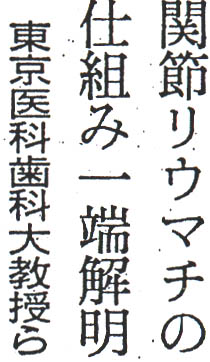 関節リウマチの
仕組み一端解明
東京医科歯科大教授ら